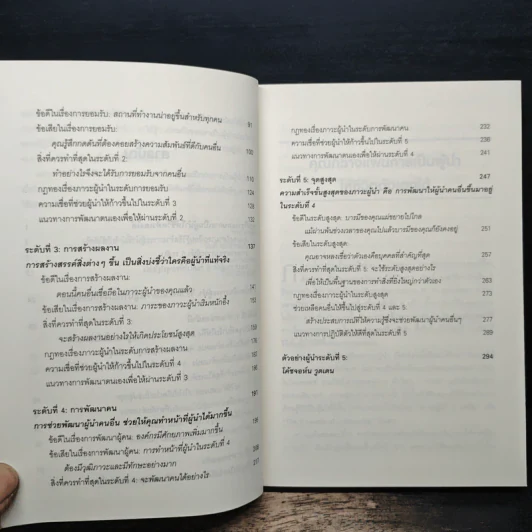 ข้อดีในเรื่องการยอมรับ: สถานที่ทำงานน่าอยู่ขึ้นสำหรับทุกคน 91
ข้อเสียในเรื่องการยอมรับ:
คุณรู้สึกกดดันที่ต้องคอยสร้างความสัมพันธ์ที่ดีกับคนอื่น 100
สิ่งที่ควรทำที่สุดในระดับ 2:
ทำอย่างไรจึงจะได้รับการยอมรับจากคนอื่น
กฎทองเรื่องภาวะผู้นำในระดับการยอมรับ
ความเชื่อที่ช่วยให้ผู้นำก้าวขึ้นไปในระดับ 3
แนวทางการพัฒนาตนเองเพื่อให้ผ่านระดับ 2
ระดับที่ 3: การสร้างผลงาน 137
การสร้างสรรค์สิ่งต่างๆ ขึ้น เป็นสิ่งบ่งชี้ว่าใครคือผู้นำที่แท้จริง
ข้อดีในเรื่องการสร้างผลงาน:
ตอนนี้คนอื่นเชื่อถือในภาวะผู้นำของคุณแล้ว 141
ข้อเสียในเรื่องการสร้างผลงาน: ภาระของภาวะผู้นำเริ่มหนักอึ้ง
สิ่งที่ควรทำที่สุดในระดับ 3:
จะสร้างผลงานอย่างไรให้เกิดประโยชน์สูงสุด
กฎทองเรื่องภาวะผู้นำในระดับการสร้างผลงาน
ความเชื่อที่ช่วยให้ผู้นำก้าวขึ้นไปในระดับ 4
แนวทางการพัฒนาตนเองเพื่อให้ผ่านระดับที่ 3
ระดับที่ 4: การพัฒนาคน
การช่วยพัฒนาผู้นำคนอื่น ช่วยให้คุณทำหน้าที่ผู้นำได้มากขึ้น
ข้อดีในเรื่องการพัฒนาผู้คน: องค์กรมีศักยภาพเพิ่มมากขึ้น
ข้อเสียในเรื่องการพัฒนาผู้คน: การทำหน้าที่ผู้นำในระดับที่ 4
ต้องมีวุฒิภาวะและมีทักษะอย่างมาก
สิ่งที่ควรทำที่สุดในระดับที่ 4: จะพัฒนาคนได้อย่างไร
กฎทองเรื่องภาวะผู้นำในระดับการพัฒนาคน 232
ความเชื่อที่ช่วยให้ผู้นำก้าวขึ้นไปในระดับ 5 236
แนวทางการพัฒนาตนเองเพื่อให้ผ่านระดับที่ 4 241
ระดับที่ 5: จุดสูงสุด 247
ความสำเร็จขั้นสูงสุดของภาวะผู้นำ คือ การพัฒนาให้ผู้นำคนอื่นขึ้นมาอยู่
ในระดับที่ 4
ข้อดีในระดับสูงสุด: บารมีของคุณแผ่ขยายไปไกล
แม้ผ่านพ้นช่วงเวลาของคุณไปแล้วบารมีของคุณก็ยังคงอยู่ 251
ข้อเสียในระดับสูงสุด:
คุณอาจหลงเชื่อว่าตัวเองคือบุคคลที่สำคัญที่สุด 257
สิ่งที่ควรทำที่สุดในระดับที่ 5: จะใช้ระดับสูงสุดอย่างไร
เพื่อให้เป็นพื้นฐานของการทำสิ่งที่ยิ่งใหญ่กว่าตัวเอง 263
กฎทองเรื่องภาวะผู้นำในระดับสูงสุด 273
ช่วยเหลือคนอื่นให้ขึ้นไปสู่ระดับที่ 4 และ 5
สร้างประสบการณ์ที่ให้ความรู้ซึ่งจะช่วยพัฒนาผู้นำคนอื่นๆ 277
แนวทางการปฏิบัติตัวให้ดีที่สุดในระดับที่ 5 289
ตัวอย่างผู้นำระดับที่ 5: 294
โค้ชจอห์น วูดเดน